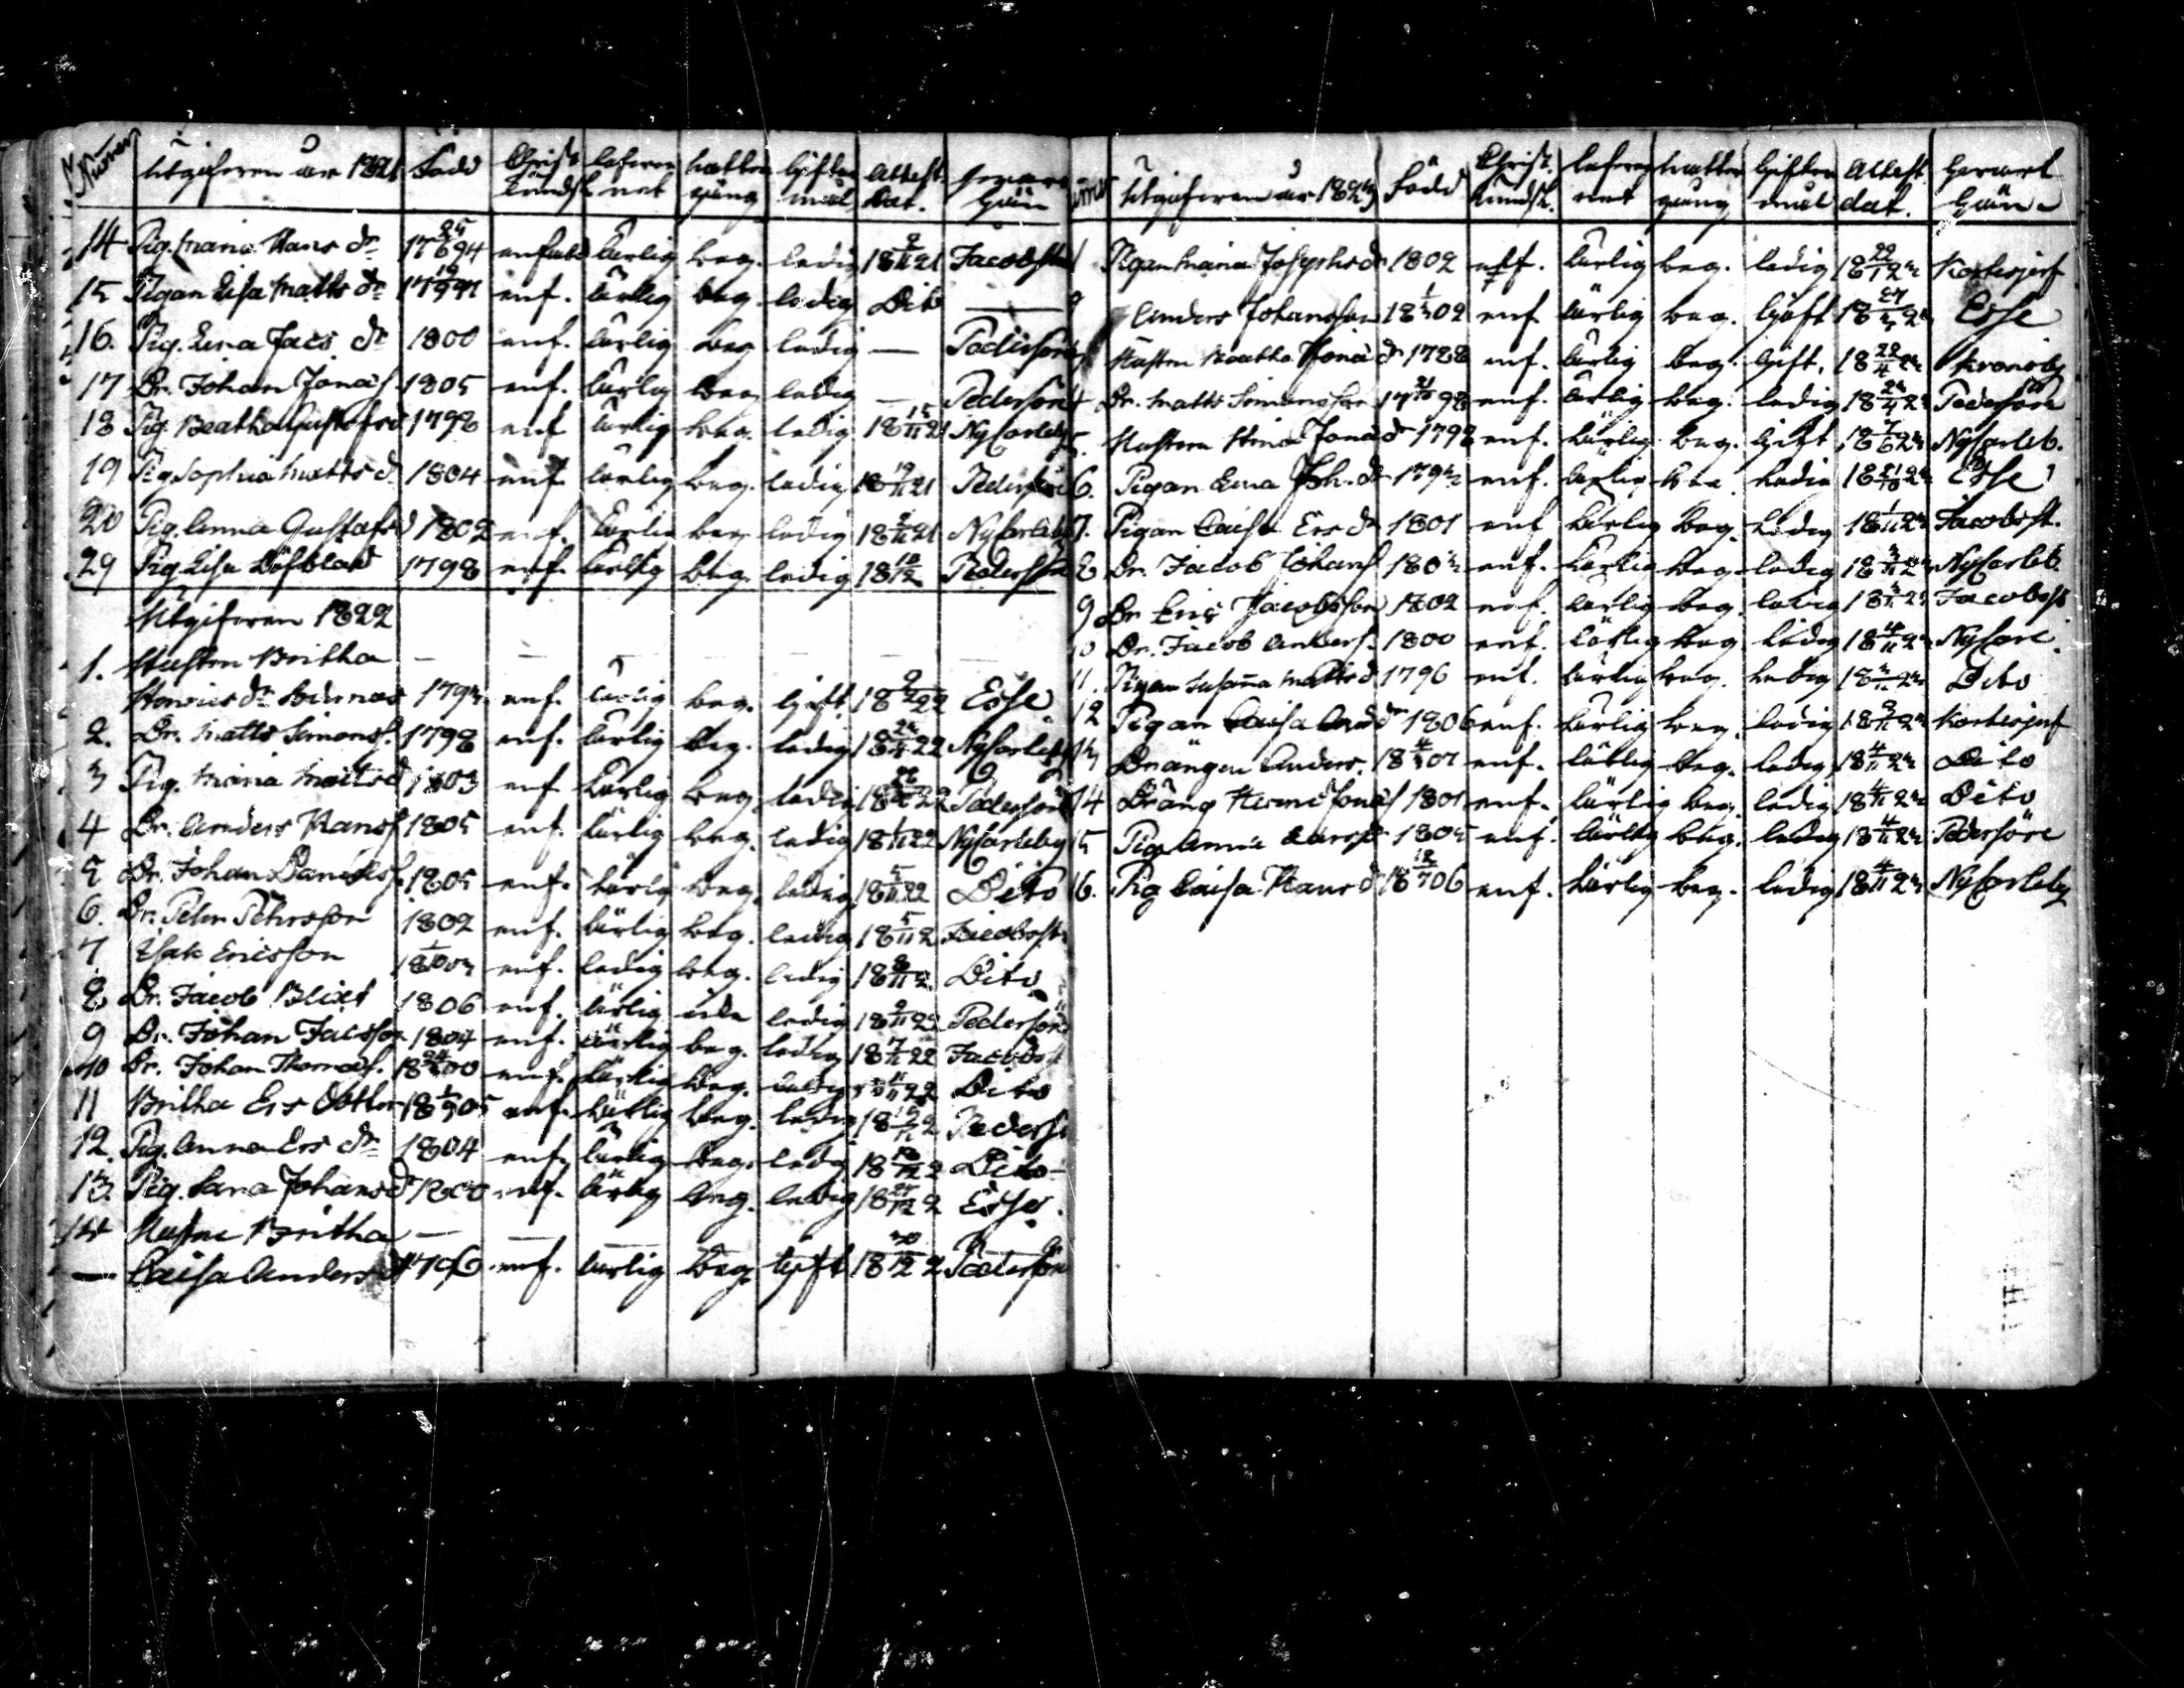 Numer Utgifven år 1821 Född Christ. kundsk. lefver net nattv. gång Gifter mål Attest. Dat.
14 Pig. Maria Hans dr 17 25/6 94 enfald lärlig beg. ledig 18 2/11 21 Jacobsta
15 Pigan Lisa Matts dr enf. lärlig beg. ledig Dito —
16. Pig. Lena Jacs dr 1800 enf. lärlig beg ledig — Pedersöre
17 Dr. Johan Jonas. 1805 enf. lärlig beg ledig — Pedersöre
18 Pig. Beatha Gustafsd 1798 enf lärlig beg. ledig 18 15/11 21 Nycarleby
19 Pig. Sophia Matts d. 1804 enf lärlig beg. ledig 18 19/11 21 Pedersöre
20 Pig. Anna Gustafsd 1802 enf. lärlig beg ledig 18 2/11 21 Nycarleby
29 Pig Lisa Löfblad 1798 enf. lärlig beg. ledig 18 18/12 Pedersöre
Utgifven 1822
1. Hustru Britha — — — — — —
dr Södernäs 179 enf. lärlig beg. gift 22 Esse
2. Dr. Matts Simons. 1798 enf. lärlig beg. ledig 22 Nycarleby
3 Pig. Maria Matts d 1803 enf lärlig beg. ledig 22 Pedersöre
4 Dr. Anders Hans. 1805 enf. lärlig beg. ledig 18 1/11 22 Nycarleby
5 Dr. Johan Daniels. 1805 enf. lärlig beg. ledig 18 5/11 22 Dito
6. Dr. Pehr Pehrsson 1802 enf. lärlig beg. ledig 18 5/11 2 Jacobsst
7 Isak Ericsson enf. ledig beg. ledig 18 8/11 2 Dito
8. Dr. Jacob Blixt 1806 enf. lärlig icke ledig 18 9/11 22 Pedersöre
9 Dr. Johan Jacsson 1804 enf. lärlig beg. ledig 18 7/11 22 Jacobst
10 Dr. Johan Thomas. enf. lärlig beg. ledig 22 Dito
11 Britha Ers Dotter 18 1/9 05 enf. lärlig beg. ledig Peders
12. Pig. Anna Ers dr 1804 enf. lärlig beg. ledig 18 2 Dito
13. Pig. Sara Johansd 1800 enf. lärlig beg. ledig 18 2 Esse
14 Hustru Britha — — —
— Caisa Anders d 1796 enf. lärlig beg. gift 18 30/12 2 Pedersöre
Utgifven år 1823 Född Christ. kundsk. lefver net nattv gång Gifter mål Attest. dat. Hvart Gån.
1 Pigan Maria Josephs dr 1802 enf. lärlig beg. ledig 18 22/1 23 Kortesjerf
2 Anders Johansson enf lärlig beg. Gift Esse
Hustru Beatha Jonä dr 1788 enf. lärlig beg. gift. 18 22/4 23 Kronoby
4 Dr. Matts Simonsson 17 21/10 98 enf. lärlig beg. ledig Pedersöre
5. Hustru Stina Jonä dr 1798 enf. lärlig beg. Gift 18 7/6 23 Nycarleb.
6. Pigan Lena Joh. dr 1793 enf. lärlig beg. ledig 18 21/10 23 Esse
7. Pigan Caisa Ers dr 1801 enf lärlig beg. Ledig 18 1/11 23 Jacobsst.
8 Dr. Jacob Johans 1803 enf. lärlig beg. ledig 18 3/11 23 Nycarleb.
9 Dr Eric Jacobsson 1802 enf. lärlig beg. ledig 18 3/11 23 Jacobsst
10 Dr. Jacob Anders. 1800 enf. lärlig beg ledig 18 4/11 23 Nycarl.
11. Pigan Susana Matts d 1796 enf. lärlig beg. ledig 18 3/11 23 Dito
12 Pigan Caisa And dr 1806 enf. lärlig beg. ledig 18 3/11 23 Kortesjerf
13 Drängen Anders. enf. lärlig beg. ledig 18 4/11 23 Dito
14 Dräng Jonas 1801 enf. lärlig beg. ledig 18 4/11 23 Dito
15 Pig Anna Lars d 1805 enf. lärlig beg. ledig 18 4/11 23 Pedersöre
16. Pig Caisa Hans d enf. lärlig beg. ledig 18 4/11 23 Nycarleby